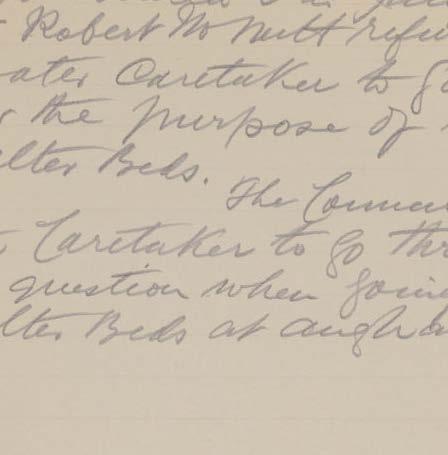 Robert McNutt refu
ater Caretaker to go
r the purpose of
ilter Beds.
The Counci
Caretaker to go thr
question when goin
ilter Beds at augha